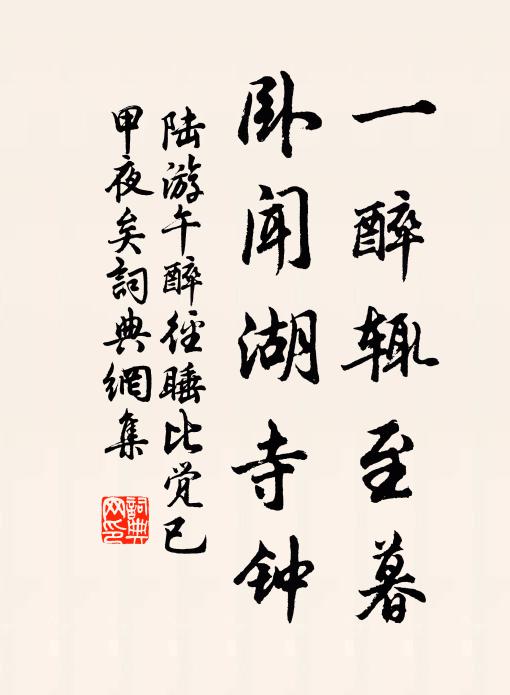 一醉辄至暮
卧闻湖寺钟
陆游午醉径睡比觉已
甲夜矣詞典網集
詞典
网印